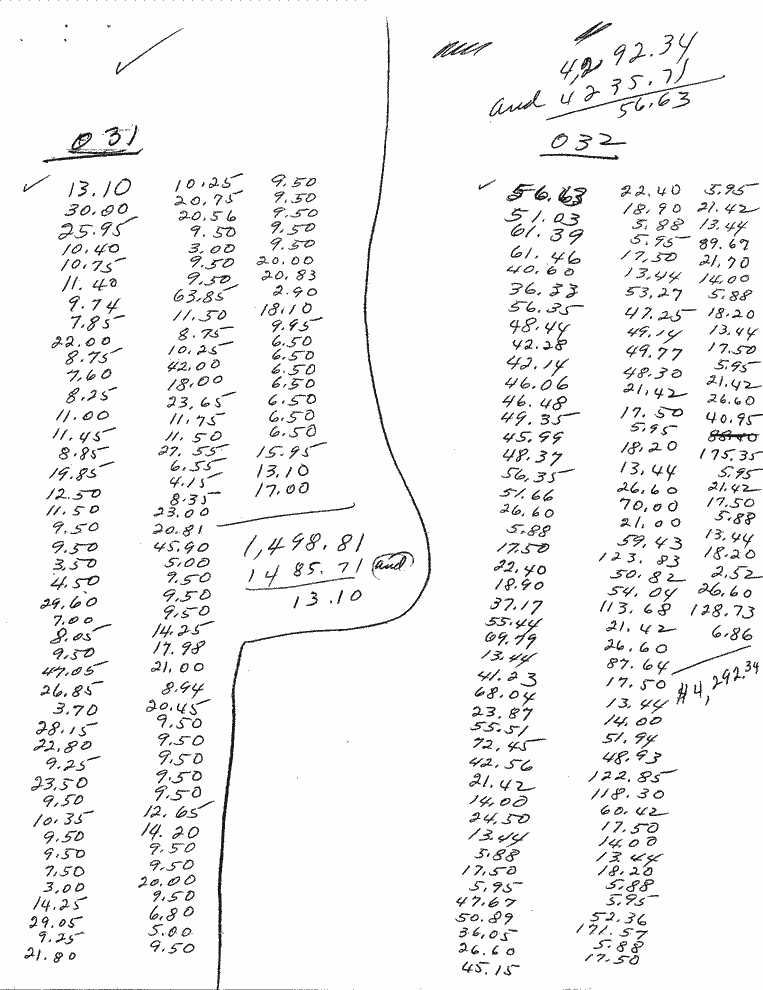 031
13.10
30.00
25.95
10.40
10.75
11.40
9.74
7.85
22.00
8.75
7.60
8.25
11.00
11.45
8.85
19.85
12.50
11.50
9.50
9.50
3.50
4.50
29.60
7.00
8.05
9.50
47.05
26.85
3.70
28.15
22.80
9.25
23.50
9.50
10.35
9.50
9.50
7.50
3.00
14.25
29.05
9.25
21.80
10.25
20.75
20.56
9.50
3.00
9.50
9.50
63.85
11.50
8.75
10.25
42.00
18.00
23.65
11.75
11.50
27.55
6.55
4.15
8.35
23.00
20.81
45.90
5.00
9.50
9.50
9.50
14.25
17.98
21.00
8.94
20.45
9.50
9.50
9.50
9.50
9.50
12.65
14.20
9.50
9.50
20.00
9.50
6.80
5.00
9.50
9.50
9.50
9.50
9.50
9.50
20.00
20.83
2.90
18.10
9.95
6.50
6.50
6.50
6.50
6.50
6.50
15.95
13.10
17.00
1,498.81
1485.71 and
13.10
4,292.34
and 4235.71
56.63
032
56.63
51.03
61.39
61.46
40.60
36.33
56.35
48.44
42.28
42.14
46.06
46.48
49.35
45.99
48.37
56.35
51.66
26.60
5.88
17.50
22.40
18.90
37.17
55.44
69.79
13.44
41.23
68.04
23.87
55.51
72.45
42.56
21.42
14.00
24.50
13.44
5.88
17.50
5.95
47.67
50.89
36.05
26.60
45.15
22.40
18.90
5.88
5.95
17.50
13.44
53.27
47.25
49.14
49.77
48.30
21.42
17.50
5.95
18.20
13.44
26.60
70.00
21.00
59.43
123.83
50.82
54.04
113.68
21.42
26.60
87.64
17.50
13.44
14.00
51.94
48.93
122.85
118.30
60.42
17.50
14.00
13.44
18.20
5.88
5.95
52.36
171.57
5.88
17.50
5.95
21.42
13.44
89.67
21.70
14.00
5.88
18.20
13.44
17.50
5.95
21.42
26.60
40.95
175.35
5.95
21.42
17.50
5.88
13.44
18.20
2.52
26.60
128.73
6.86
#4,292.34